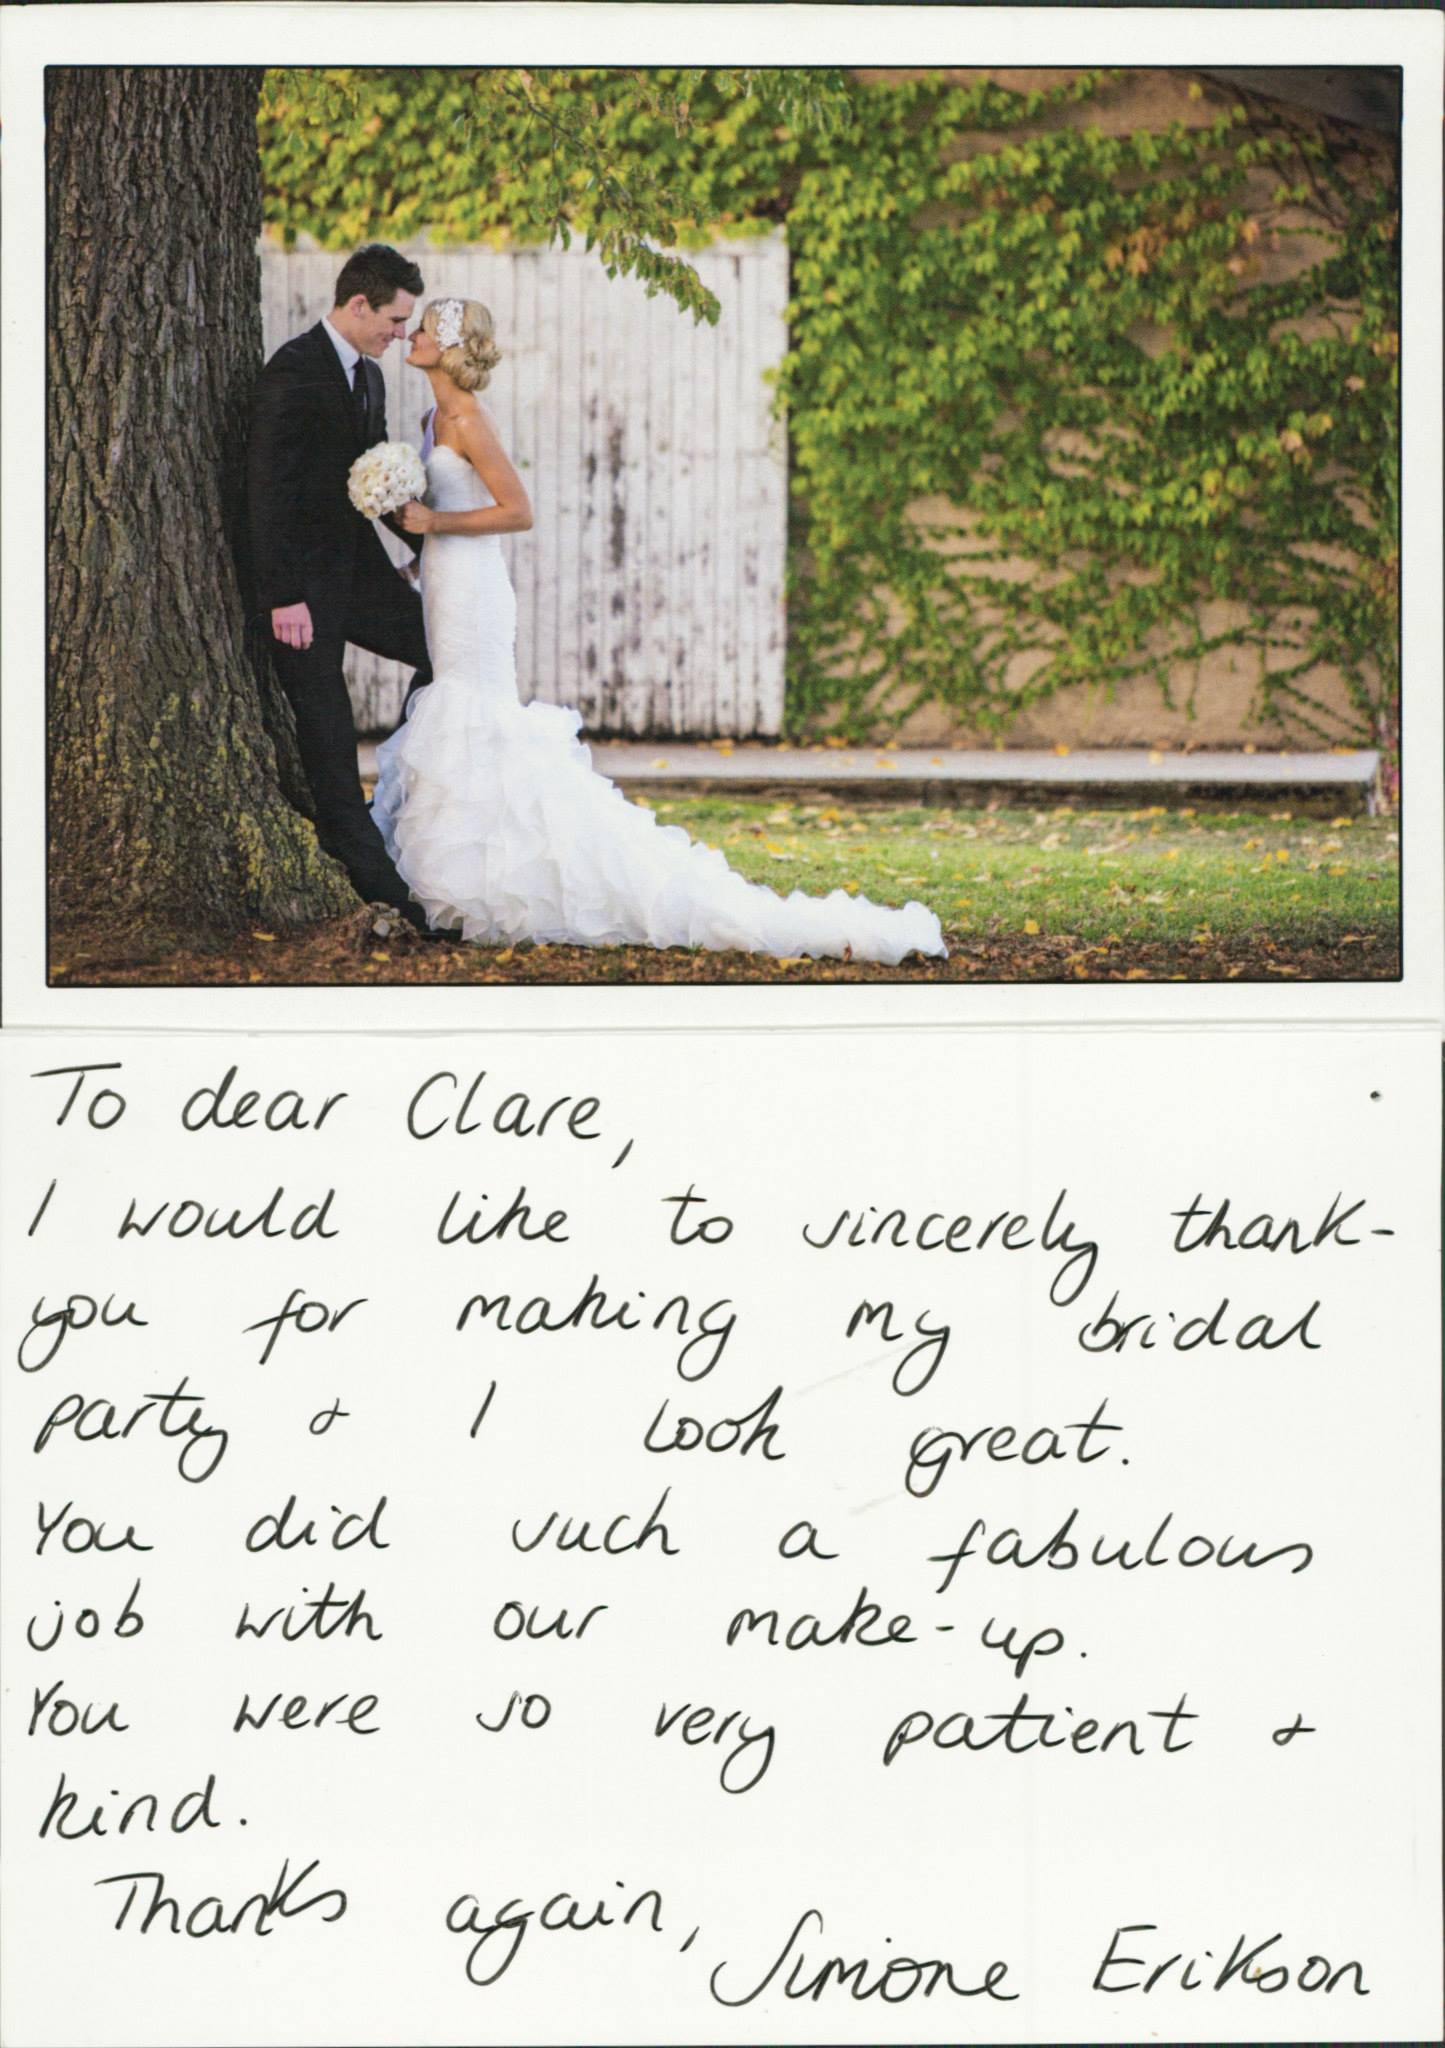 To dear Clare,
I would like to sincerely thank-
you for making my bridal
party & I look great.
You did such a fabulous
job with our make-up.
You were so very patient &
kind.
Thanks again,
Simone Erikson